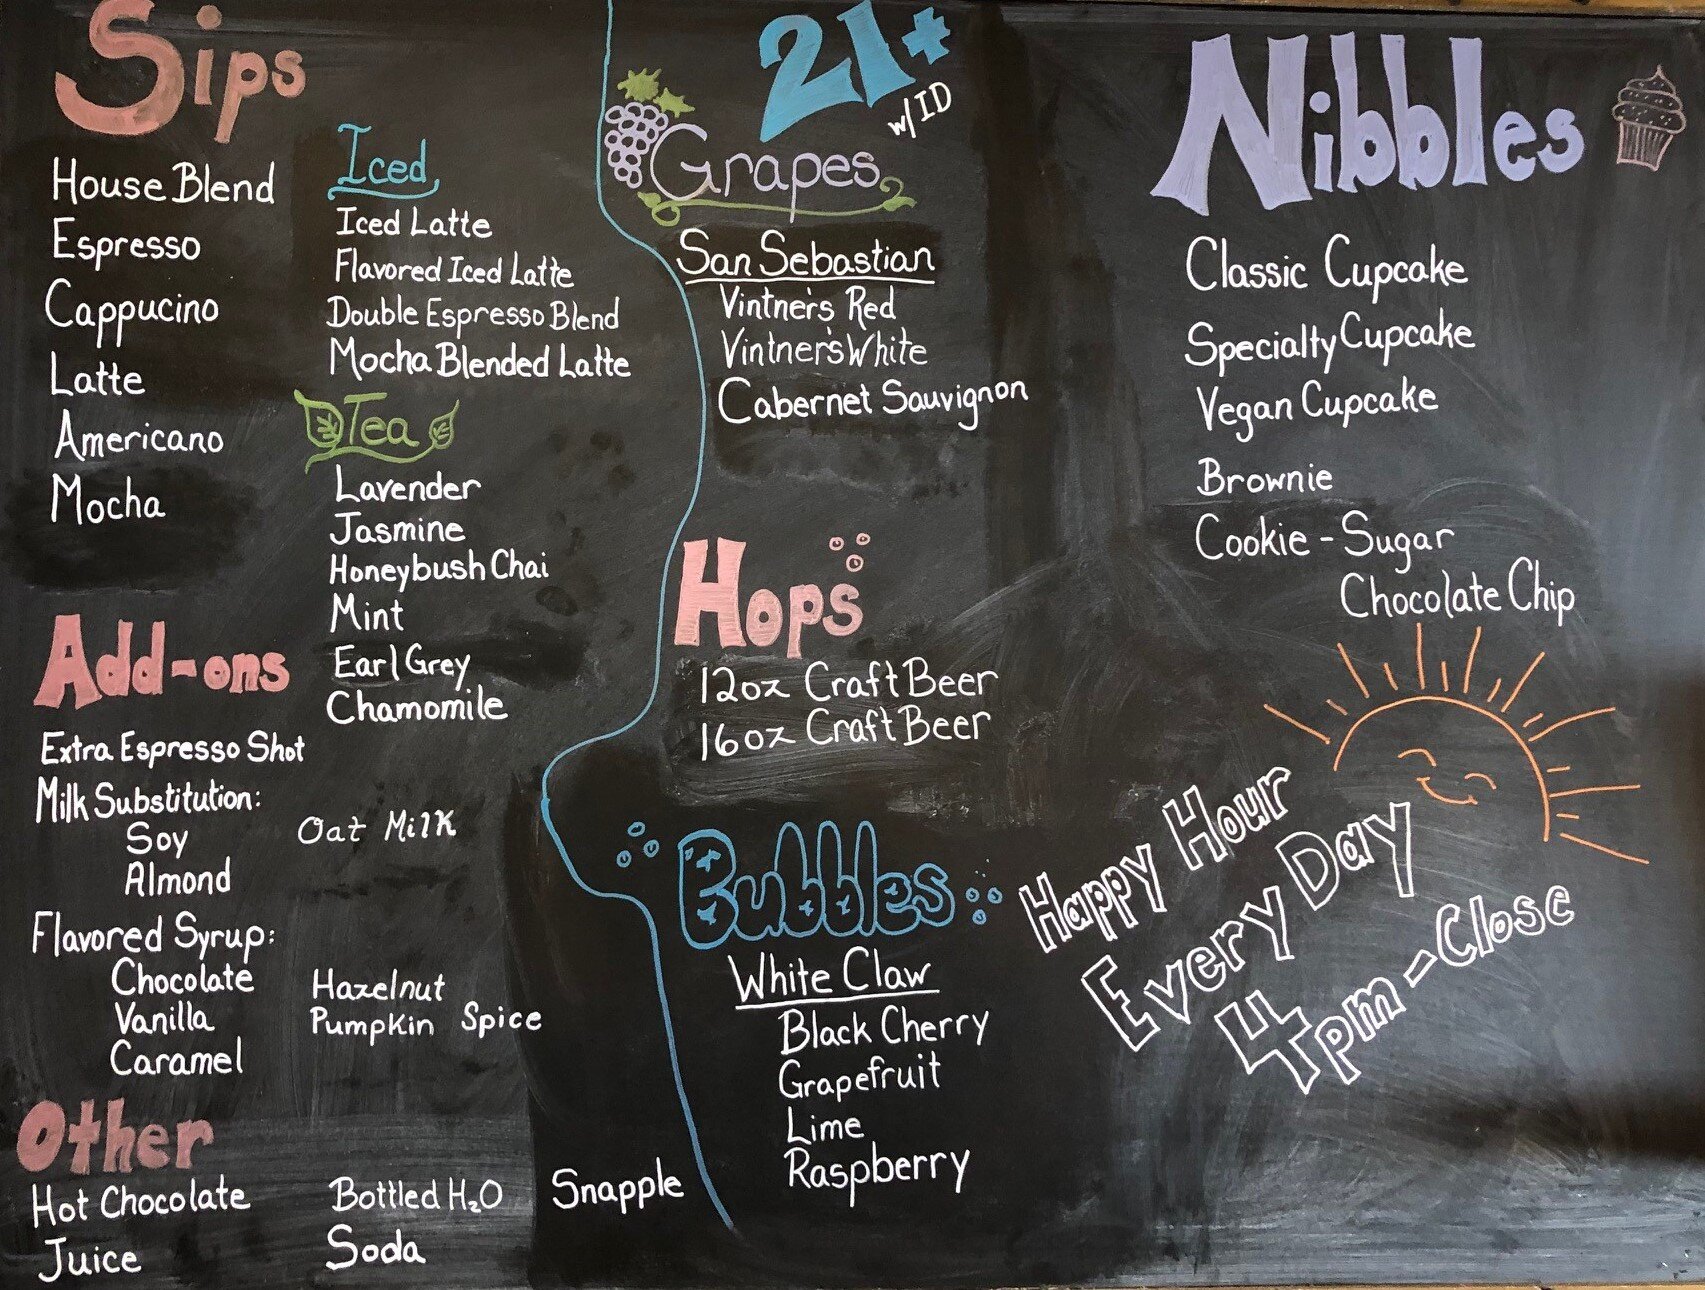 Sips
House Blend
Espresso
Cappucino
Latte
Americano
Mocha
Iced
Iced Latte
Flavored Iced Latte
Double Espresso Blend
Mocha Blended Latte
Tea
Lavender
Jasmine
Honeybush Chai
Mint
Earl Grey
Chamomile
Add-ons
Extra Espresso Shot
Milk Substitution:
Soy
Almond
Oat Milk
Flavored Syrup:
Chocolate
Vanilla
Caramel
Hazelnut
Pumpkin Spice
Other
Hot Chocolate
Juice
Bottled H₂O
Soda
Snapple
21+
w/ ID
Grapes
San Sebastian
Vintner's Red
Vintner's White
Cabernet Sauvignon
Hops
12oz Craft Beer
16oz Craft Beer
Bubbles
White Claw
Black Cherry
Grapefruit
Lime
Raspberry
Nibbles
Classic Cupcake
Specialty Cupcake
Vegan Cupcake
Brownie
Cookie - Sugar
Chocolate Chip
Happy Hour
Every Day
4pm - Close